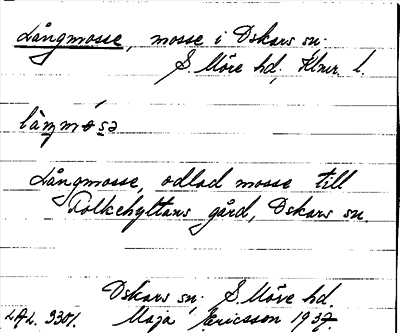 Långmosse, mosse i Oskars sn.
S. Möre hd, Klmr. l.
làŋmósə
Långmosse, odlad mosse till
Tolkehyttans gård, Oskars sn.
Oskars sn. S. Möre hd.
LAL. 3301. Maja Ericsson 1937.